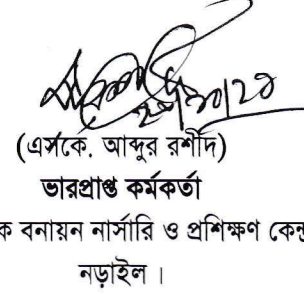 (এস.কে. আব্দুর রশীদ)
ভারপ্রাপ্ত কর্মকর্তা
ক বনায়ন নার্সারি ও প্রশিক্ষণ কেন্দ্র
নড়াইল ।